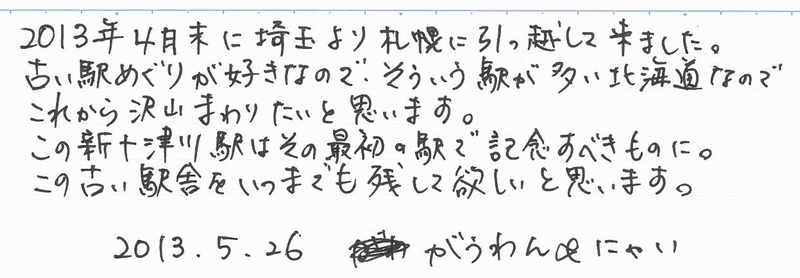 2013年4月末に埼玉より札幌に引っ越して来ました。
古い駅めぐりが好きなので、そういう駅が多い北海道なので
これから沢山まわりたいと思います。
この新十津川駅はその最初の駅で記念すべきものに。
この古い駅舎をいつまでも残して欲しいと思います。
2013.5.26 がうわん&にゃい